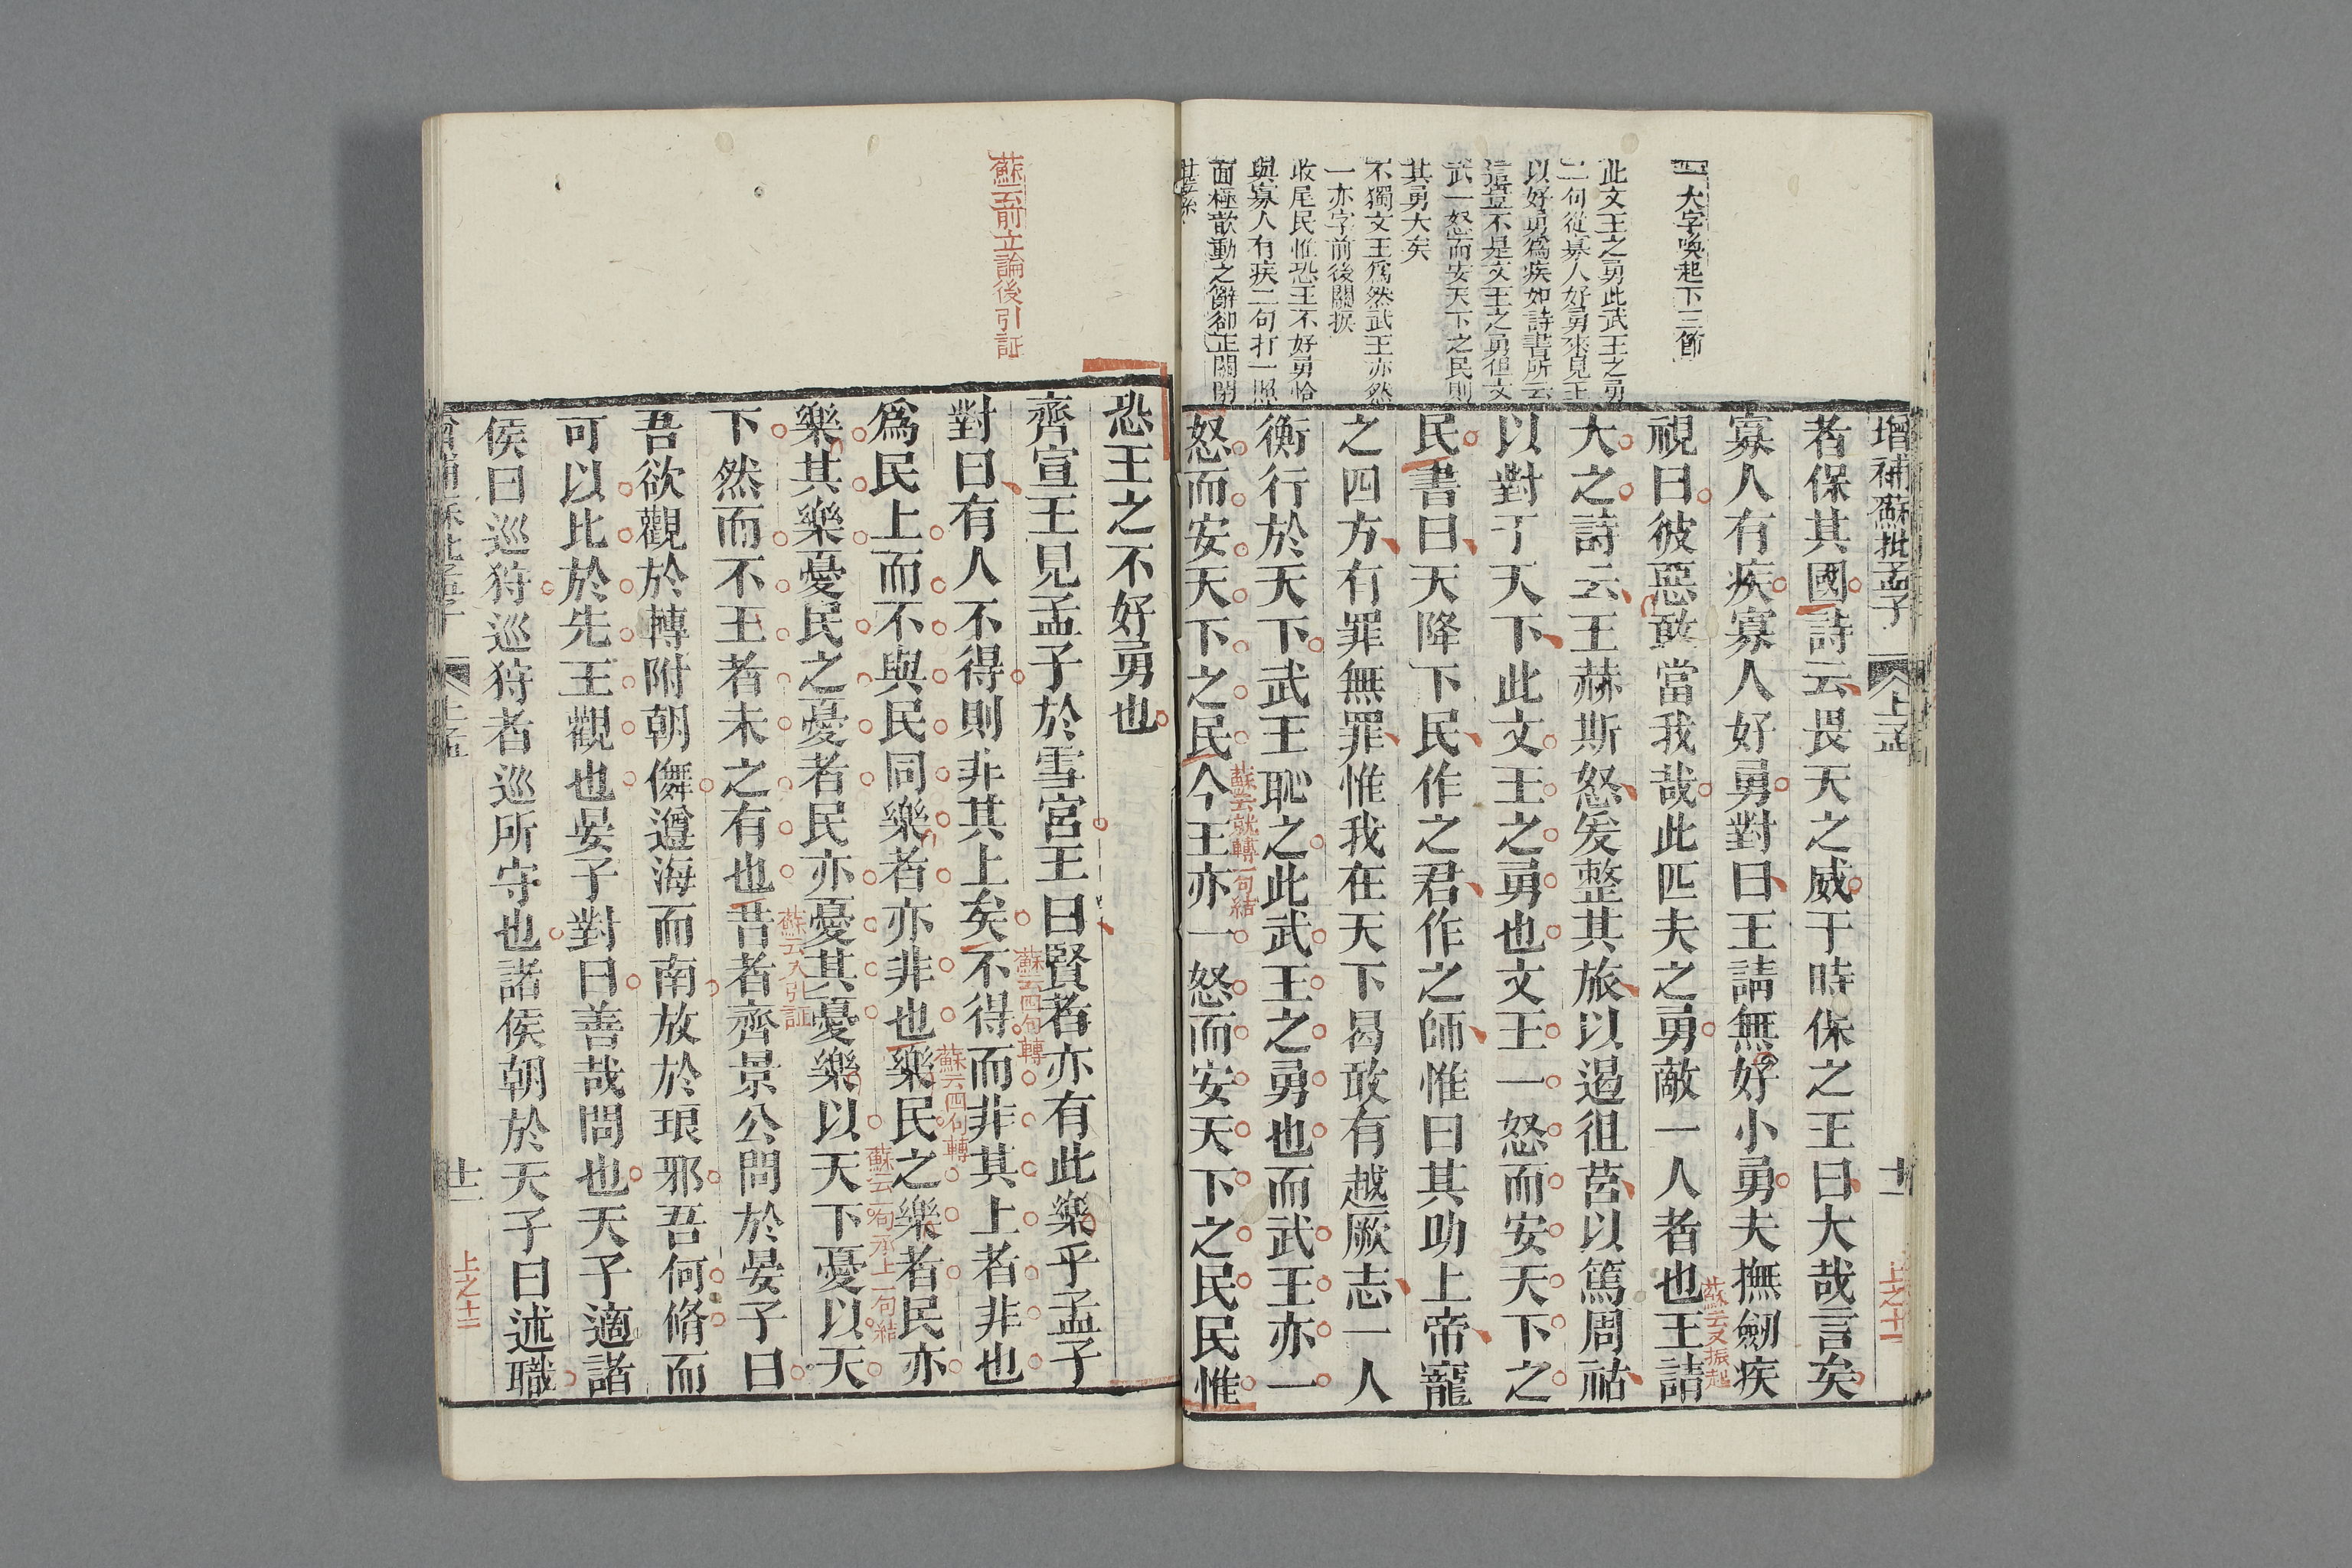 增補蘇批孟子
上孟
十二
上之十二
四一大字喚起下三節
此文王之勇此武王之勇
二句從寡人好勇來見王
以好勇爲疾如詩書所云
這豈不是文王之勇但文
武一怒而安天下之民則
其勇大矣
不獨文王爲然武王亦然
一亦字前後關捩
收尾民惟恐王不好勇恰
與寡人有疾二句打一照
面極歆動之辭卻正關閉
者保其國詩云畏天之威于時保之王曰大哉言矣
寡人有疾寡人好勇對曰王請無好小勇夫撫劒疾
視曰彼惡敢當我哉此匹夫之勇敵一人者也王請
蘇云又振起
大之詩云王赫斯怒爰整其旅以遏徂莒以篤周祜
以對于天下此文王之勇也文王一怒而安天下之
民書曰天降下民作之君作之師惟曰其助上帝寵
之四方有罪無罪惟我在天下曷敢有越厥志一人
衡行於天下武王恥之此武王之勇也而武王亦一
怒而安天下之民今王亦一怒而安天下之民民惟
蘇云就轉一句結
蘇云前立論後引証
恐王之不好勇也
齊宣王見孟子於雪宮王曰賢者亦有此樂乎孟子
對曰有人不得則非其上矣不得而非其上者非也
蘇云四句轉
爲民上而不與民同樂者亦非也樂民之樂者民亦
蘇云四句轉
樂其樂憂民之憂者民亦憂其憂樂以天下憂以天
蘇云一句承上一句結
下然而不王者未之有也昔者齊景公問於晏子曰
蘇云大引証
吾欲觀於轉附朝儛遵海而南放於琅邪吾何脩而
可以比於先王觀也晏子對曰善哉問也天子適諸
侯曰巡狩巡狩者巡所守也諸侯朝於天子曰述職
上孟
十二
上之十二